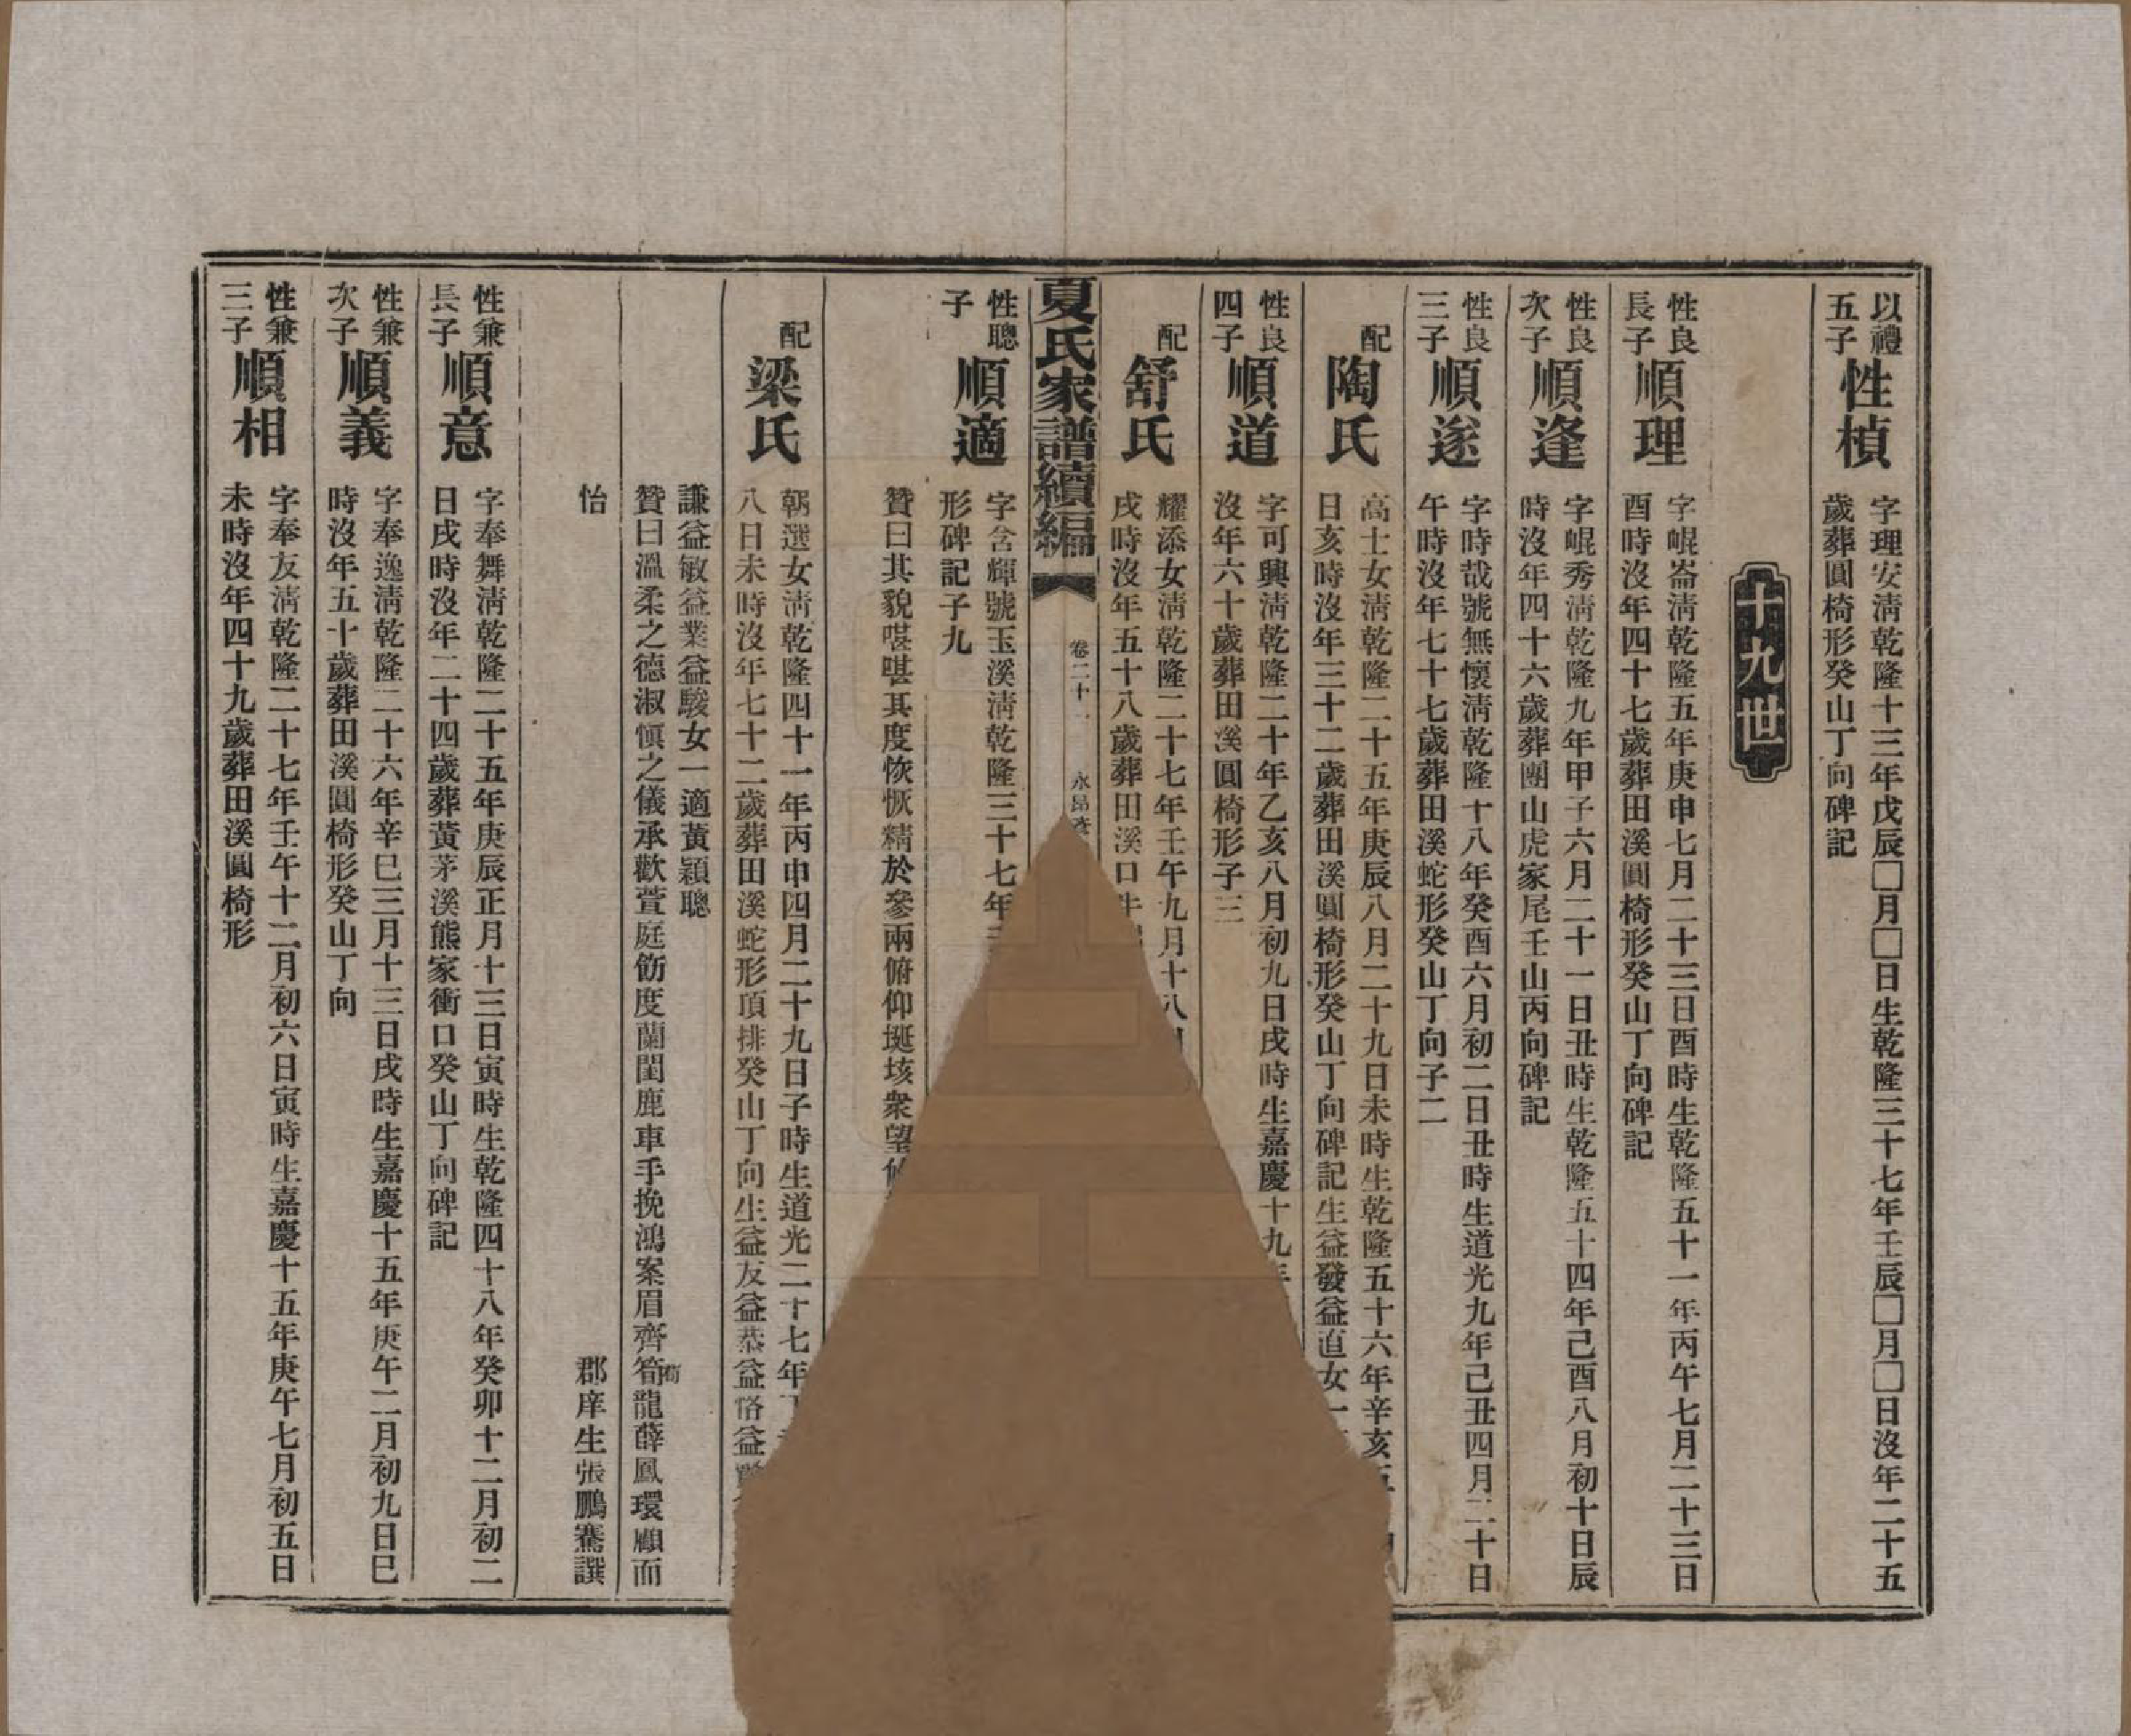 以禮
五子
性楨
字理安淸乾隆十三年戊辰□月□日生乾隆三十七年壬辰□月□日沒年二十五
歲葬圓椅形癸山丁向碑記
十九世
性良
長子
順理
字崐崙淸乾隆五年庚申七月二十三日酉時生乾隆五十一年丙午七月二十三日
酉時沒年四十七歲葬田溪圓椅形癸山丁向碑記
性良
次子
順逢
字崐秀淸乾隆九年甲子六月二十一日丑時生乾隆五十四年己酉八月初十日辰
時沒年四十六歲葬團山虎家尾壬山丙向碑記
性良
三子
順遂
字時哉號無懷淸乾隆十八年癸酉六月初二日丑時生道光九年己丑四月二十日
午時沒年七十七歲葬田溪蛇形癸山丁向子二
配
陶氏
高士女淸乾隆二十五年庚辰八月二十九日未時生乾隆五十六年辛亥五
日亥時沒年三十二歲葬田溪圓椅形癸山丁向碑記生益發益直女一
性良
四子
順道
字可興淸乾隆二十年乙亥八月初九日戌時生嘉慶十九年
沒年六十歲葬田溪圓椅形子三
配
舒氏
耀添女淸乾隆二十七年壬午九月十八日
戌時沒年五十八歲葬田溪口
夏氏家譜續編
卷二十一
永昂
性聰
子
順適
字含輝號玉溪淸乾隆三十七年
形碑記子九
贊曰其貌堪堪其度恢恢精於參兩俯仰埏垓衆望
配
梁氏
朝選女淸乾隆四十一年丙申四月二十九日子時生道光二十七年
八日未時沒年七十二歲葬田溪蛇形頂排癸山丁向生益友益恭益恪益
謙益敏益業益駿女一適黃穎聰
贊曰溫柔之德淑愼之儀承歡萱庭飭度蘭閨鹿車手挽鴻案眉齊筍龍薛鳳環顧而
荀
怡
郡庠生張鵬騫譔
性兼
長子
順意
字奉舞淸乾隆二十五年庚辰正月十三日寅時生乾隆四十八年癸卯十二月初二
日戌時沒年二十四歲葬黃茅溪熊家衝口癸山丁向碑記
性兼
次子
順義
字奉逸淸乾隆二十六年辛巳三月十三日戌時生嘉慶十五年庚午二月初九日巳
時沒年五十歲葬田溪圓椅形癸山丁向
性兼
三子
順相
字奉友淸乾隆二十七年壬午十二月初六日寅時生嘉慶十五年庚午七月初五日
未時沒年四十九歲葬田溪圓椅形